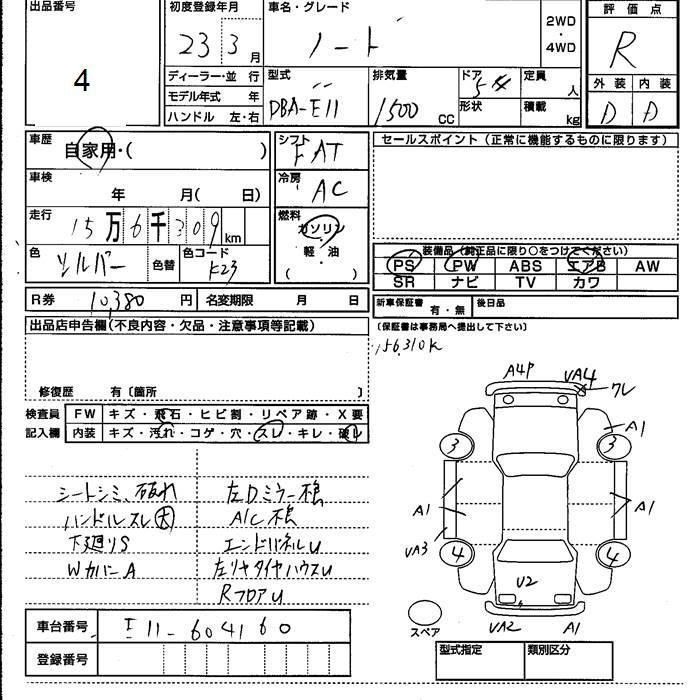 出品番号
4
初度登録年月
23 3月
車名・グレード
ノート
2WD
・
4WD
評価点
R
外装 内装
D D
ディーラー・並 行
モデル年式 年
ハンドル 左・右
型式
DBA-E11
排気量
1500 CC
ドア
5
形状
定員
人
積載
kg
車歴
自家用・( )
車検
年 月( 日)
走行
15万6千309km
色
シルバー
色替
色コード
K23
シフト
FAT
冷房
AC
燃料
ガソリン
・
軽・油
( )
セールスポイント(正常に機能するものに限ります)
装備品(純正品に限り○をつけてください)
PS PW ABS エアB AW
SR ナビ TV カワ
R券 10,380 円 名変期限 月 日
新車保証書 有・無 後日品
(保証書は事務局へ提出して下さい)
156,310K
出品店申告欄(不良内容・欠品・注意事項等記載)
修復歴 有〔箇所 〕
検査員
記入欄
FW キズ・飛石・ヒビ割・リペア跡・X要
内装 キズ・汚れ・コゲ・穴・スレ・キレ・破レ
シートシミ、破れ
ハンドルスレ大
下廻りS
WカバーA
左Dミラー不良
A/C不良
エンドパネルU
左リヤタイヤハウスU
RフロアU
A4P
VA4
ワレ
A1
3 3
A1
A1
VA3
4 4
U2
VA2
A1
スペア
車台番号 E11-604160
登録番号
型式指定 類別区分